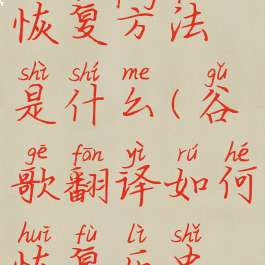 恢复方法
shì shí me gǔ
是什么(谷
gē fān yì rú hé
歌翻译如何
huī fù lì shǐ
恢复历史